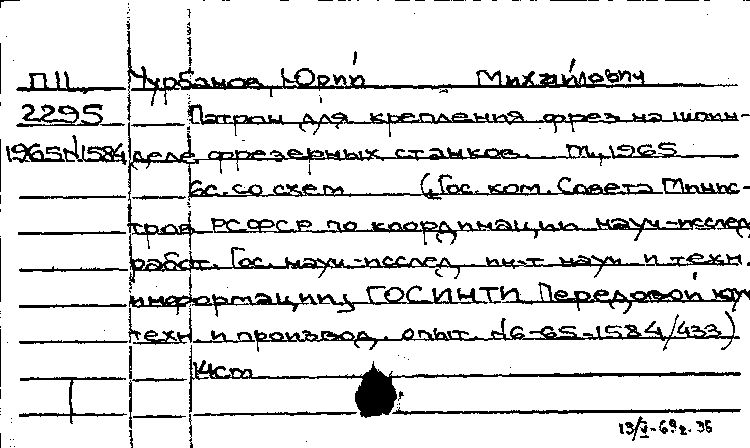 П11 Чурбанов, Юрий Михайлович
2295 Патрон для крепления фрез на шпин-
1965№1584 деле фрезерных станков. М., 1965
6с. со схем (Гос. ком. Совета Минис-
тров РСФСР по координации науч-исслед
работ. Гос. науч.-исслед. ин-т науч и техн.
информации, ГОСИНТИ Передовой науч
техн. и производ. опыт. №6-65-1584/433)
14cm
13/V-69г. 36